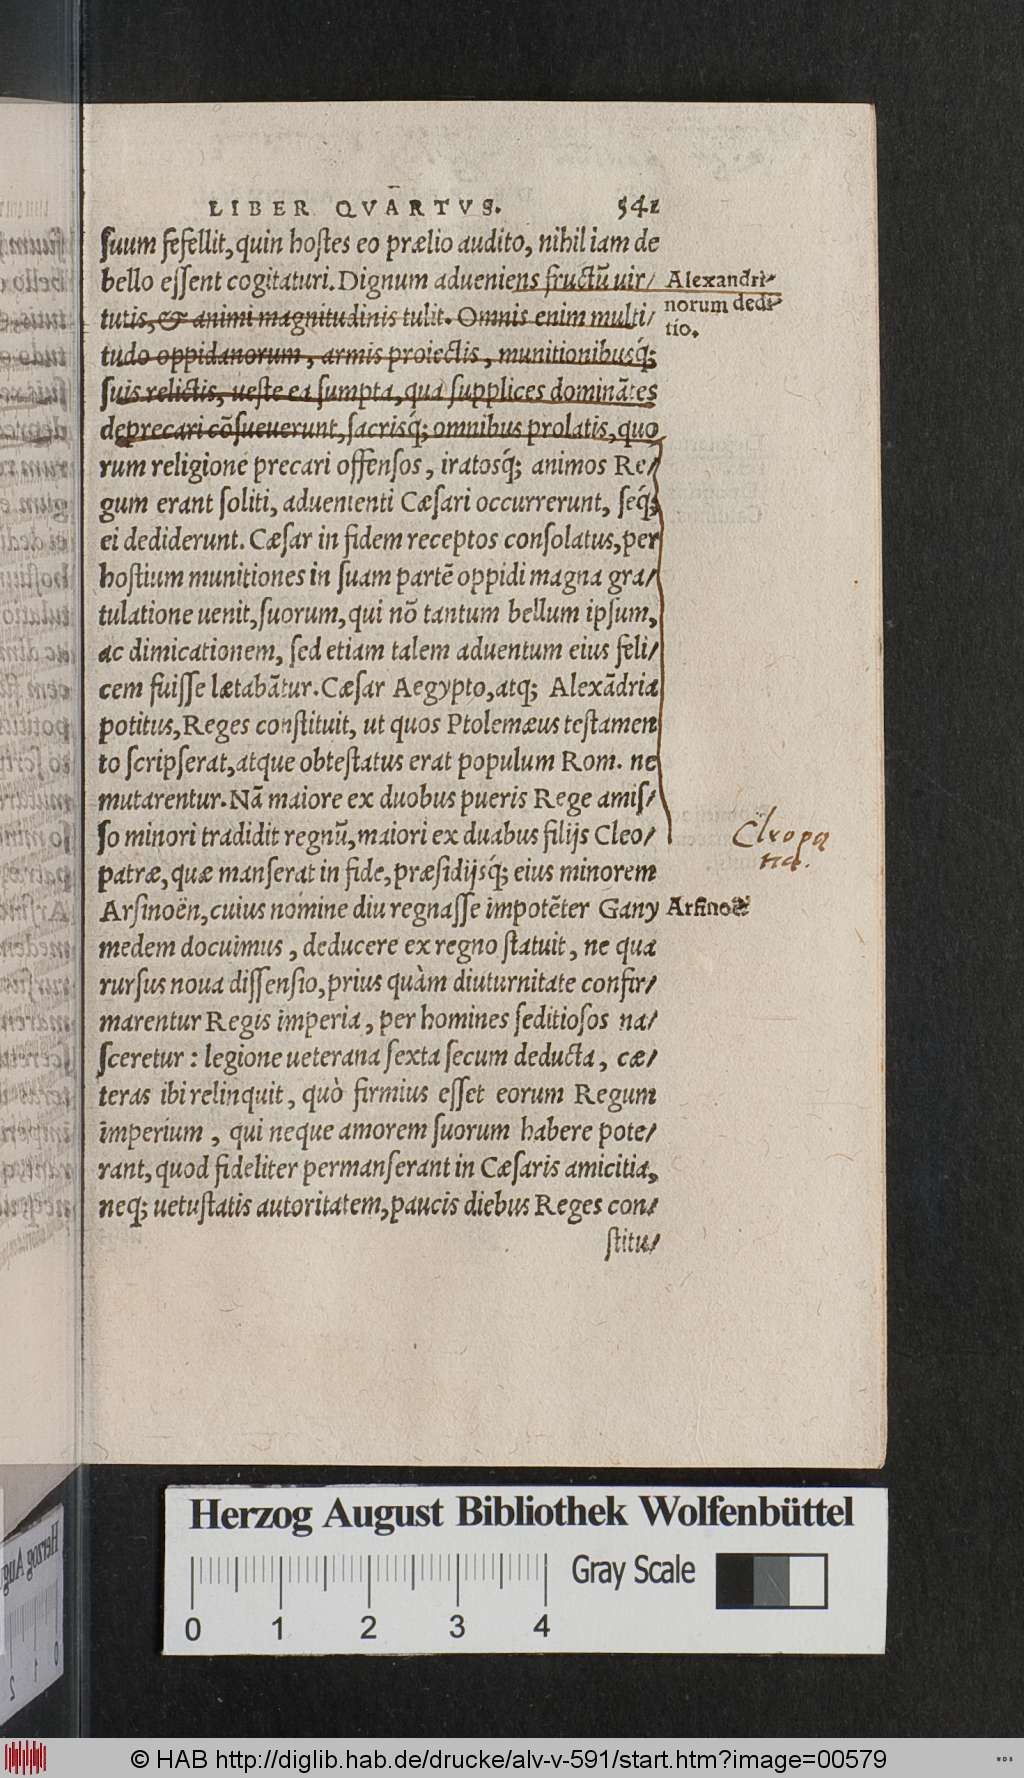 LIBER QVARTVS. 541
suum fefellit, quin hostes eo prælio audito, nihil iam de
bello essent cogitaturi. Dignum adueniens fructũ uir/
tutis, & animi magnitudinis tulit. Omnis enim multi/
tudo oppidanorum, armis proiectis, munitionibusq́;
suis relictis, ueste ea sumpta, qua supplices dominãtes
deprecari cõsueuerunt, sacrisq́; omnibus prolatis, quo
rum religione precari offensos, iratosq́; animos Re/
gum erant soliti, aduenienti Cæsari occurrerunt, seq́;
ei dediderunt. Cæsar in fidem receptos consolatus, per
hostium munitiones in suam partẽ oppidi magna gra/
tulatione uenit, suorum, qui nõ tantum bellum ipsum,
ac dimicationem, sed etiam talem aduentum eius feli/
cem fuisse lætabãtur. Cæsar Aegypto, atq; Alexãdria
potitus, Reges constituit, ut quos Ptolemæus testamen
to scripserat, atque obtestatus erat populum Rom. ne
mutarentur. Nã maiore ex duobus pueris Rege amis/
so minori tradidit regnũ, maiori ex duabus filijs Cleo/
patræ, quæ manserat in fide, præsidijsq́; eius minorem
Arsinoën, cuius nomine diu regnasse impotẽter Gany
medem docuimus, deducere ex regno statuit, ne qua
rursus noua dissensio, prius quàm diuturnitate confir/
marentur Regis imperia, per homines seditiosos na/
sceretur: legione ueterana sexta secum deducta, cæ/
teras ibi relinquit, quò firmius esset eorum Regum
imperium, qui neque amorem suorum habere pote/
rant, quod fideliter permanserant in Cæsaris amicitia,
neq; uetustatis autoritatem, paucis diebus Reges con/
stitu/
Alexandri/
norum dedi/
tio.
Cleopa
tra.
Arsinoë
Herzog August Bibliothek Wolfenbüttel
Gray Scale
0 1 2 3 4
© HAB http://diglib.hab.de/drucke/alv-v-591/start.htm?image=00579